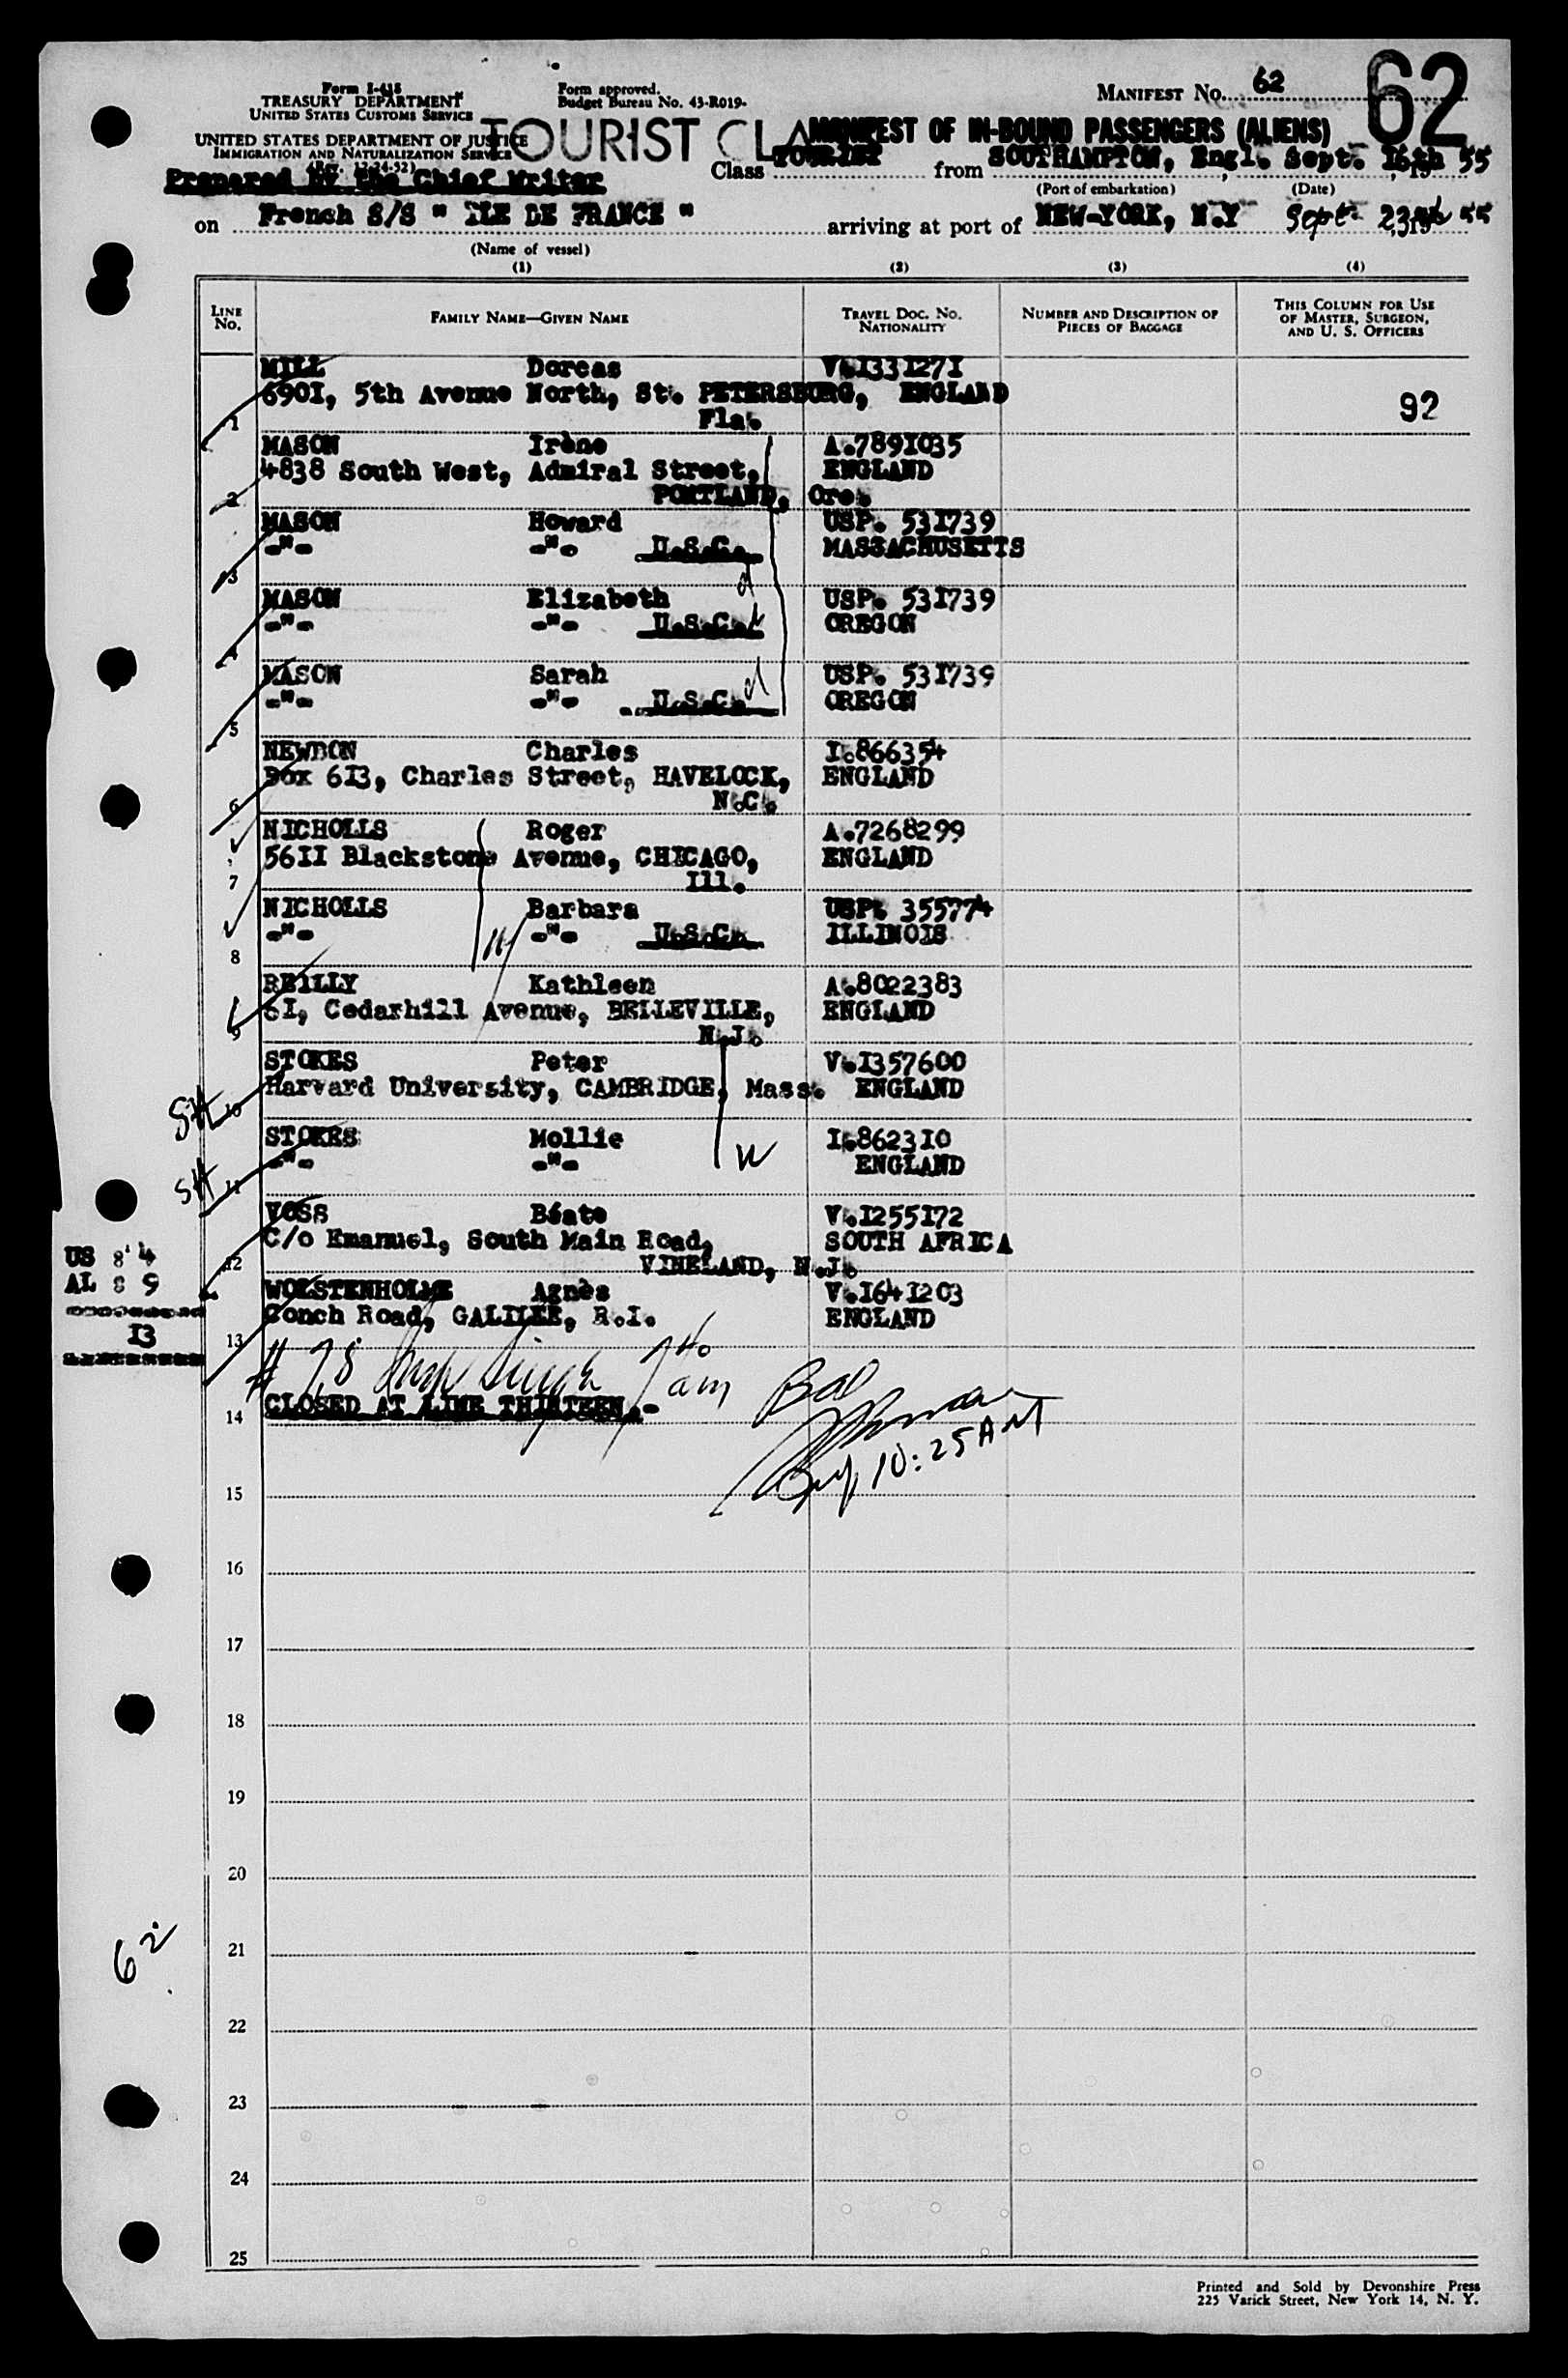 Form I-418
TREASURY DEPARTMENT
UNITED STATES CUSTOMS SERVICE
UNITED STATES DEPARTMENT OF JUSTICE
IMMIGRATION AND NATURALIZATION SERVICE
(Rev. 12-24-52)
Prepared by the Chief Writer
Form approved.
Budget Bureau No. 43-R019.
MANIFEST No. 62
62
TOURIST CLA
MANIFEST OF IN-BOUND PASSENGERS (ALIENS)
Class TOURIST from SOUTHAMPTON, Engl. Sept. 16th, 19 55
(Port of embarkation) (Date)
on French S/S " ILE DE FRANCE " arriving at port of NEW-YORK, N.Y Sept 23rd, 19 55
(Name of vessel)
(1) (2) (3) (4)
LINE No. FAMILY NAME—GIVEN NAME TRAVEL DOC. No. NATIONALITY NUMBER AND DESCRIPTION OF PIECES OF BAGGAGE THIS COLUMN FOR USE OF MASTER, SURGEON, AND U. S. OFFICERS
MILL Dorcas V.1331271
6901, 5th Avenue North, St. PETERSBURG, ENGLAND 92
1 Fla.
MASON Irène A.7891035
4838 South West, Admiral Street, ENGLAND
2 PORTLAND, Ore.
MASON Howard USP. 531739
-"- -"- U.S.C. MASSACHUSETTS
3
MASON Elizabeth USP. 531739
-"- -"- U.S.C. OREGON
4
MASON Sarah USP. 531739
-"- -"- U.S.C. OREGON
5
NEWBON Charles I.866354
Box 613, Charles Street, HAVELOCK, ENGLAND
6 N.C.
NICHOLLS Roger A.7268299
5611 Blackstone Avenue, CHICAGO, ENGLAND
7 Ill.
NICHOLLS Barbara USP. 355774
-"- -"- U.S.C. ILLINOIS
8
REILLY Kathleen A.8022383
81, Cedarhill Avenue, BELLEVILLE, ENGLAND
9 N.J.
STOKES Peter V.1357600
Harvard University, CAMBRIDGE, Mass. ENGLAND
SH 10
STOKES Mollie I.862310
-"- -"- ENGLAND
SH 11
VOSS Béate V.1255172
C/o Emanuel, South Main Road, SOUTH AFRICA
12 VINELAND, N.J.
US : 4
AL : 9
13
WOLSTENHOLME Agnès V.1641203
Conch Road, GALILEE, R.I. ENGLAND
13
# 78 740 am
14 CLOSED AT LINE THIRTEEN.-
10:25 AM
15
16
17
18
19
20
21
62
22
23
24
25
Printed and Sold by Devonshire Press
225 Varick Street, New York 14, N. Y.